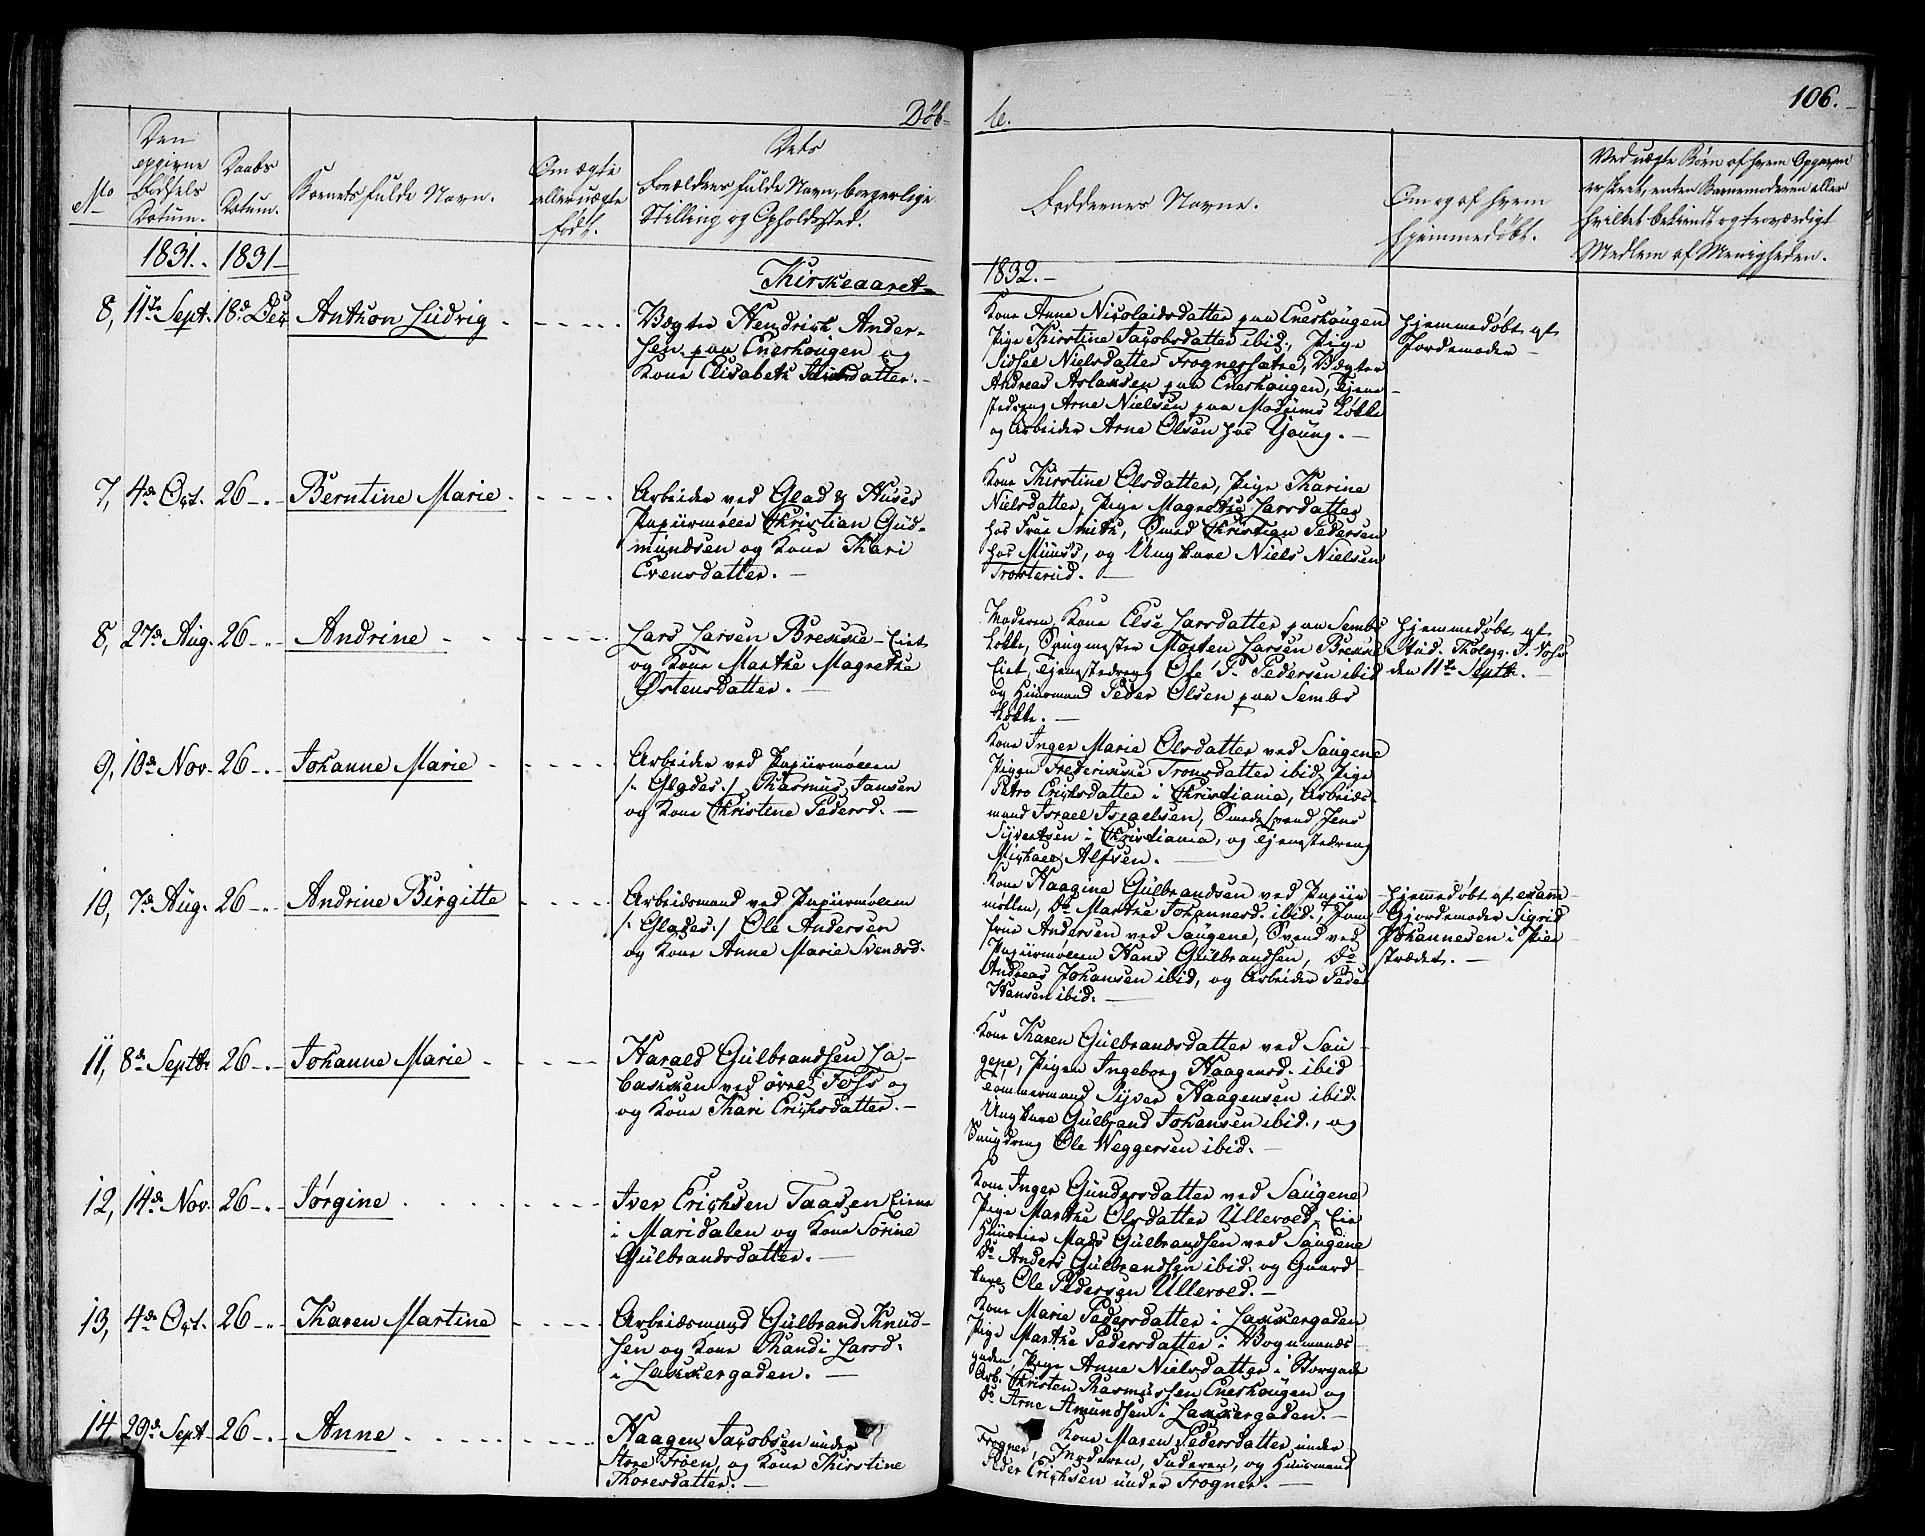 Døb-
te.
106.
No
Den opgivne Fødsels Datum.
Daabs Datum.
Barnets fulde Navn.
Om ægte eller uægte født.
Dets Forældres fulde Navn, borgerlige Stilling og Opholdssted.
Faddernes Navne.
Om og af hvem hjemmedøbt.
Ved uægte Børn af hvem Opgaven er skeet, enten Barnemoderen eller hvilket bekiendt og troværdigt Medlem af Menigheden.
1831. 1831
Kirkeaaret
1832.
8, 11te Sept. 18d Dec
Anthon Ludvig
Vægter Hendrich Ander-
sen paa Enerhougen og
Kone Elisabeth datter.
Kone Anne Nicolaidsdatter paa Enerhougen
Pige Kirstine Jacobsdatter ibid., Pige
Sidsel Nielsdatter Frognersætre, Vægter
Andreas Aslaksen paa Enerhougen, Tjene-
stedreng Arne Nielsen paa Modums Løkke
og Arbeider Arne Olsen hos Young.
Hjemmedøbt af
Jordemoder
7, 4de Oct. 26
Berntine Marie
Arbeider ved Glad & Huses
Papiirmølle Christian Gud-
mundsen og Kone Kari
Evensdatter.
Kone Kirstine Olsdatter, Pige Karine
Nielsdatter, Pige Magrethe Larsdatter
hos Frue Smith, Smed Christian Pedersen
hos Muus's, og Ungkarl Niels Nielsen
Trosterud.
8, 27de Aug. 26
Andrine
Lars Larsen Brekke-Eiet
og Kone Marthe Magrethe
Østensdatter.
Moderen, Kone Else Larsdatter paa Sembs
Løkke, Saugmester Morten Larsen Brekke
Eiet, Tjenestedreng Ole P. Pedersen ibid
og Huusmand Peder Olsen paa Sembs
Løkke.
Hjemmedøbt af
Stud. Theolog. J.
den 11te Septbr.
9, 10de Nov. 26
Johanne Marie
Arbeider ved Papiirmøllen
/: Glades :/ Rasmus Jansen
og Kone Christine Pedersd.
Kone Inger Marie Olsdatter ved Saugene
Pigen Frederikke Tronsdatter ibid, Pige
Petro Erichsdatter i Christiania, Arbeids-
mand Israel Israelsen, Smedesvend Jens
Syvertsen i Christiania, og Tjenestedreng
Michael Alfsen.
10, 7de Aug. 26
Andrine Birgitte
Arbeidsmand ved Papiirmøllen
/: Glades :/ Ole Andersen
og Kone Anne Marie Svendsd.
Kone Haagine Gulbrandsen ved Papiir
møllen, Do Marthe Johannesd. ibid., Jom-
frue Andersen ved Saugene, Svend ved
Papiirmøllen Hans Gulbrandsen, Do
Andreas Johansen ibid, og Arbeider Peder
Hansen ibid.
Hjemmedøbt af exam-
Gjordemoder Sigrid
Johannesen i Pier-
strædet.
11, 8de Septbr 26
Johanne Marie
Harald Gulbrandsen La-
bakken ved øvre Foss og
og Kone Kari Erichsdatter.
Kone Karen Gulbrandsdatter ved Sau-
gene, Pigen Ingeborg Haagensd. ibid
Tømmermand Syver Haagensen ibid.
Ungkarl Gulbrand Johansen ibid., og
Saugdreng Ole Weggersen ibid.
12, 14de Nov. 26
Jørgine
Iver Erichsen Taasen Eiene
i Maridalen og Kone Sørine
Gulbrandsdatter.
Kone Inger Gundersdatter ved Saugene
Pige Marthe Olsdatter Ullevold Eie
Huuseier Mads Gulbrandsen ved Saugene
Do Anders Gulbrandsen ibid. og Gaard-
karl Ole Pedersen Ullevold.
13, 4de Oct. 26
Karen Martine
Arbeidsmand Gulbrand Knud-
sen og Kone Randi Larsd.
i Lakkergaden.
Kone Marie Pedersdatter i Lakkergaden
Pige Marthe Pedersdatter i Vognmands-
gaden, Pige Anne Nielsdatter i Storgade
Arb. Christen Rasmussen Enerhougen og
Do Arne Amundsen i Lakkergaden.
14 29de Sept. 26
Anne
Haagen Jacobsen under
Store Frøen, og Kone Kirstine
Thoresdatter.
Kone Maren Pedersdatter under
Frogner, Moderen, Faderen, og Huusmand
Peder Erichsen under Frogner.